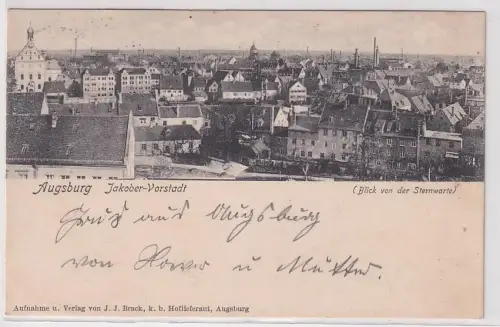 Augsburg Jakober-Vorstadt (Blick von der Sternwarte)
Gruß aus Augsburg
von u Mutter.
Aufnahme u. Verlag von J. J. Brack, k. b. Hoflieferant, Augsburg